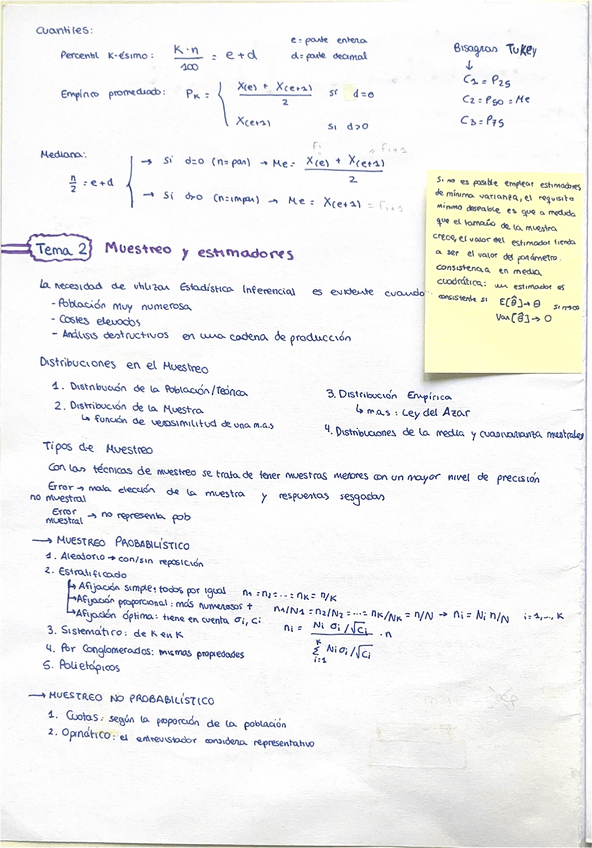 Cuantiles:
Percentil K-ésimo: K·n / 100 = e+d
e = parte entera
d = parte decimal
Empírico promediado: PK = { X(e) + X(e+1) / 2 si d=0
X(e+1) si d>0
Bisagras TUKEY
↓
C1 = P25
C2 = P50 = Me
C3 = P75
Mediana:
n/2 = e+d
→ Si d=0 (n=par) → Me = X(e) + X(e+1) / 2
→ Si d>0 (n=impar) → Me = X(e+1)
Si no es posible emplear estimadores
de mínima varianza, el requisito
mínimo deseable es que a medida
que el tamaño de la muestra
crece, el valor del estimador tienda
a ser el valor del parámetro.
consistencia en media
cuadrática: un estimador es
consistente si E[θ̂] → θ
Var[θ̂] → 0
Tema 2 Muestreo y estimadores
La necesidad de utilizar Estadística Inferencial es evidente cuando
- Población muy numerosa
- Costes elevados
- Análisis destructivos en una cadena de producción
Distribuciones en el Muestreo
1. Distribución de la Población/Teórica
2. Distribución de la Muestra
↳ función de verosimilitud de una m.a.s
3. Distribución Empírica
↳ m.a.s: Ley del Azar
4. Distribuciones de la media y cuasivarianza muestrales
Tipos de Muestreo
Con las técnicas de muestreo se trata de tener muestras menores con un mayor nivel de precisión
Error no muestral → mala elección de la muestra y respuestas sesgadas
Error muestral → no representa pob
→ MUESTREO PROBABILÍSTICO
1. Aleatorio → con/sin reposición
2. Estratificado
↳ Afijación simple: todos por igual n1 = n2 = ... = nK = n/K
↳ Afijación proporcional: más numerosos + n1/N1 = n2/N2 = ... = nK/NK = n/N → ni = Ni n/N i=1,..., K
↳ Afijación óptima: tiene en cuenta σi, Ci ni = Ni σi /√Ci / Σ(i=1, K) Ni σi /√Ci · n
3. Sistemático: de K en K
4. Por Conglomerados: mismas propiedades
5. Polietápicos
→ MUESTREO NO PROBABILÍSTICO
1. Cuotas: según la proporción de la población
2. Opinático: el entrevistador considera representativo